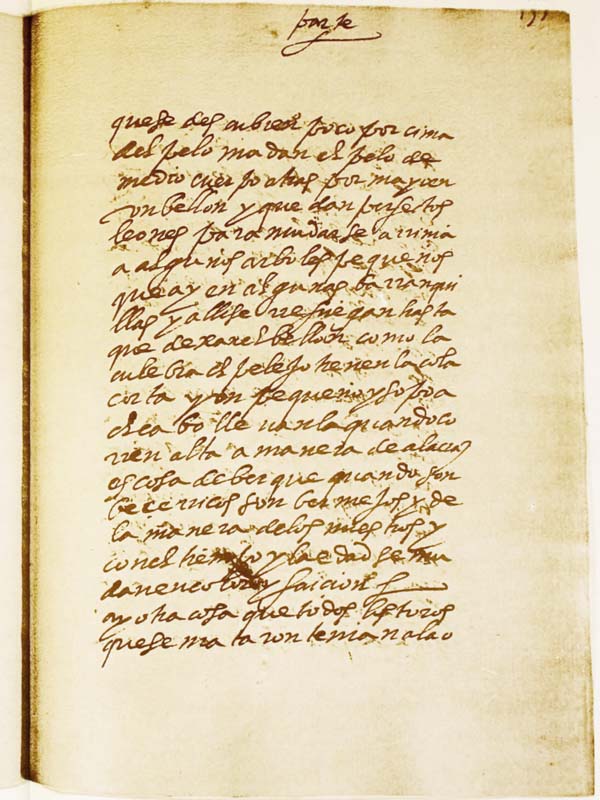 parte
que se descubren poco por cima
del pelo mudan el pelo de
medio cuerpo atras por mayo en
un bellon y quedan perfectos
leones para mudarse arrima
a algunos arboles pequeños
que ay en algunas barranqui
llas y alli se rrefriegan hasta
que dexan el bellon como la
culebra el pelejo tienen la cola
corta y un pequeño ysopo a
el cabo llevan la quando co
rren alta a manera de alacran
es cosa de ber que quando son
becerricos son bermejos y de
la manera de los nuestros y
con el tiempo y la edad se mu
dan en color y faicion
ay otra cosa que todos los toros
que se mataron tenian a la o